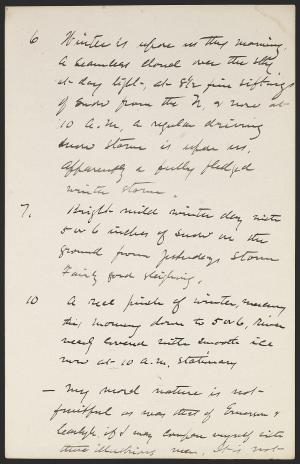 6 Winter is upon us this morning.
A seamless cloud over the sky
at day light, at 8½ fine siftings
of snow from the N, & now at
10 A.M. a regular driving
snow storm is upon us,
apparently a fully fledged
winter storm.
7. Bright mild winter day with
5 or 6 inches of snow on the
ground from yesterdays storm
Fairly good sleighing.
10 A real pinch of winter, mercury
this morning down to 5 or 6, River
nearly covered with smooth ice
now at 10 A.M. stationary
— My mind nature is not
fruitful as was that of Emerson &
Carlyle, if I may compare myself with
these illustrious men. It is not